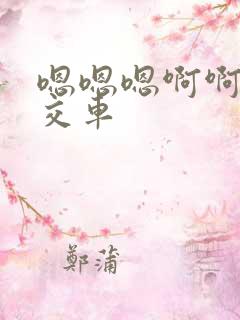 嗯嗯嗯啊啊
交車
鄭蒲